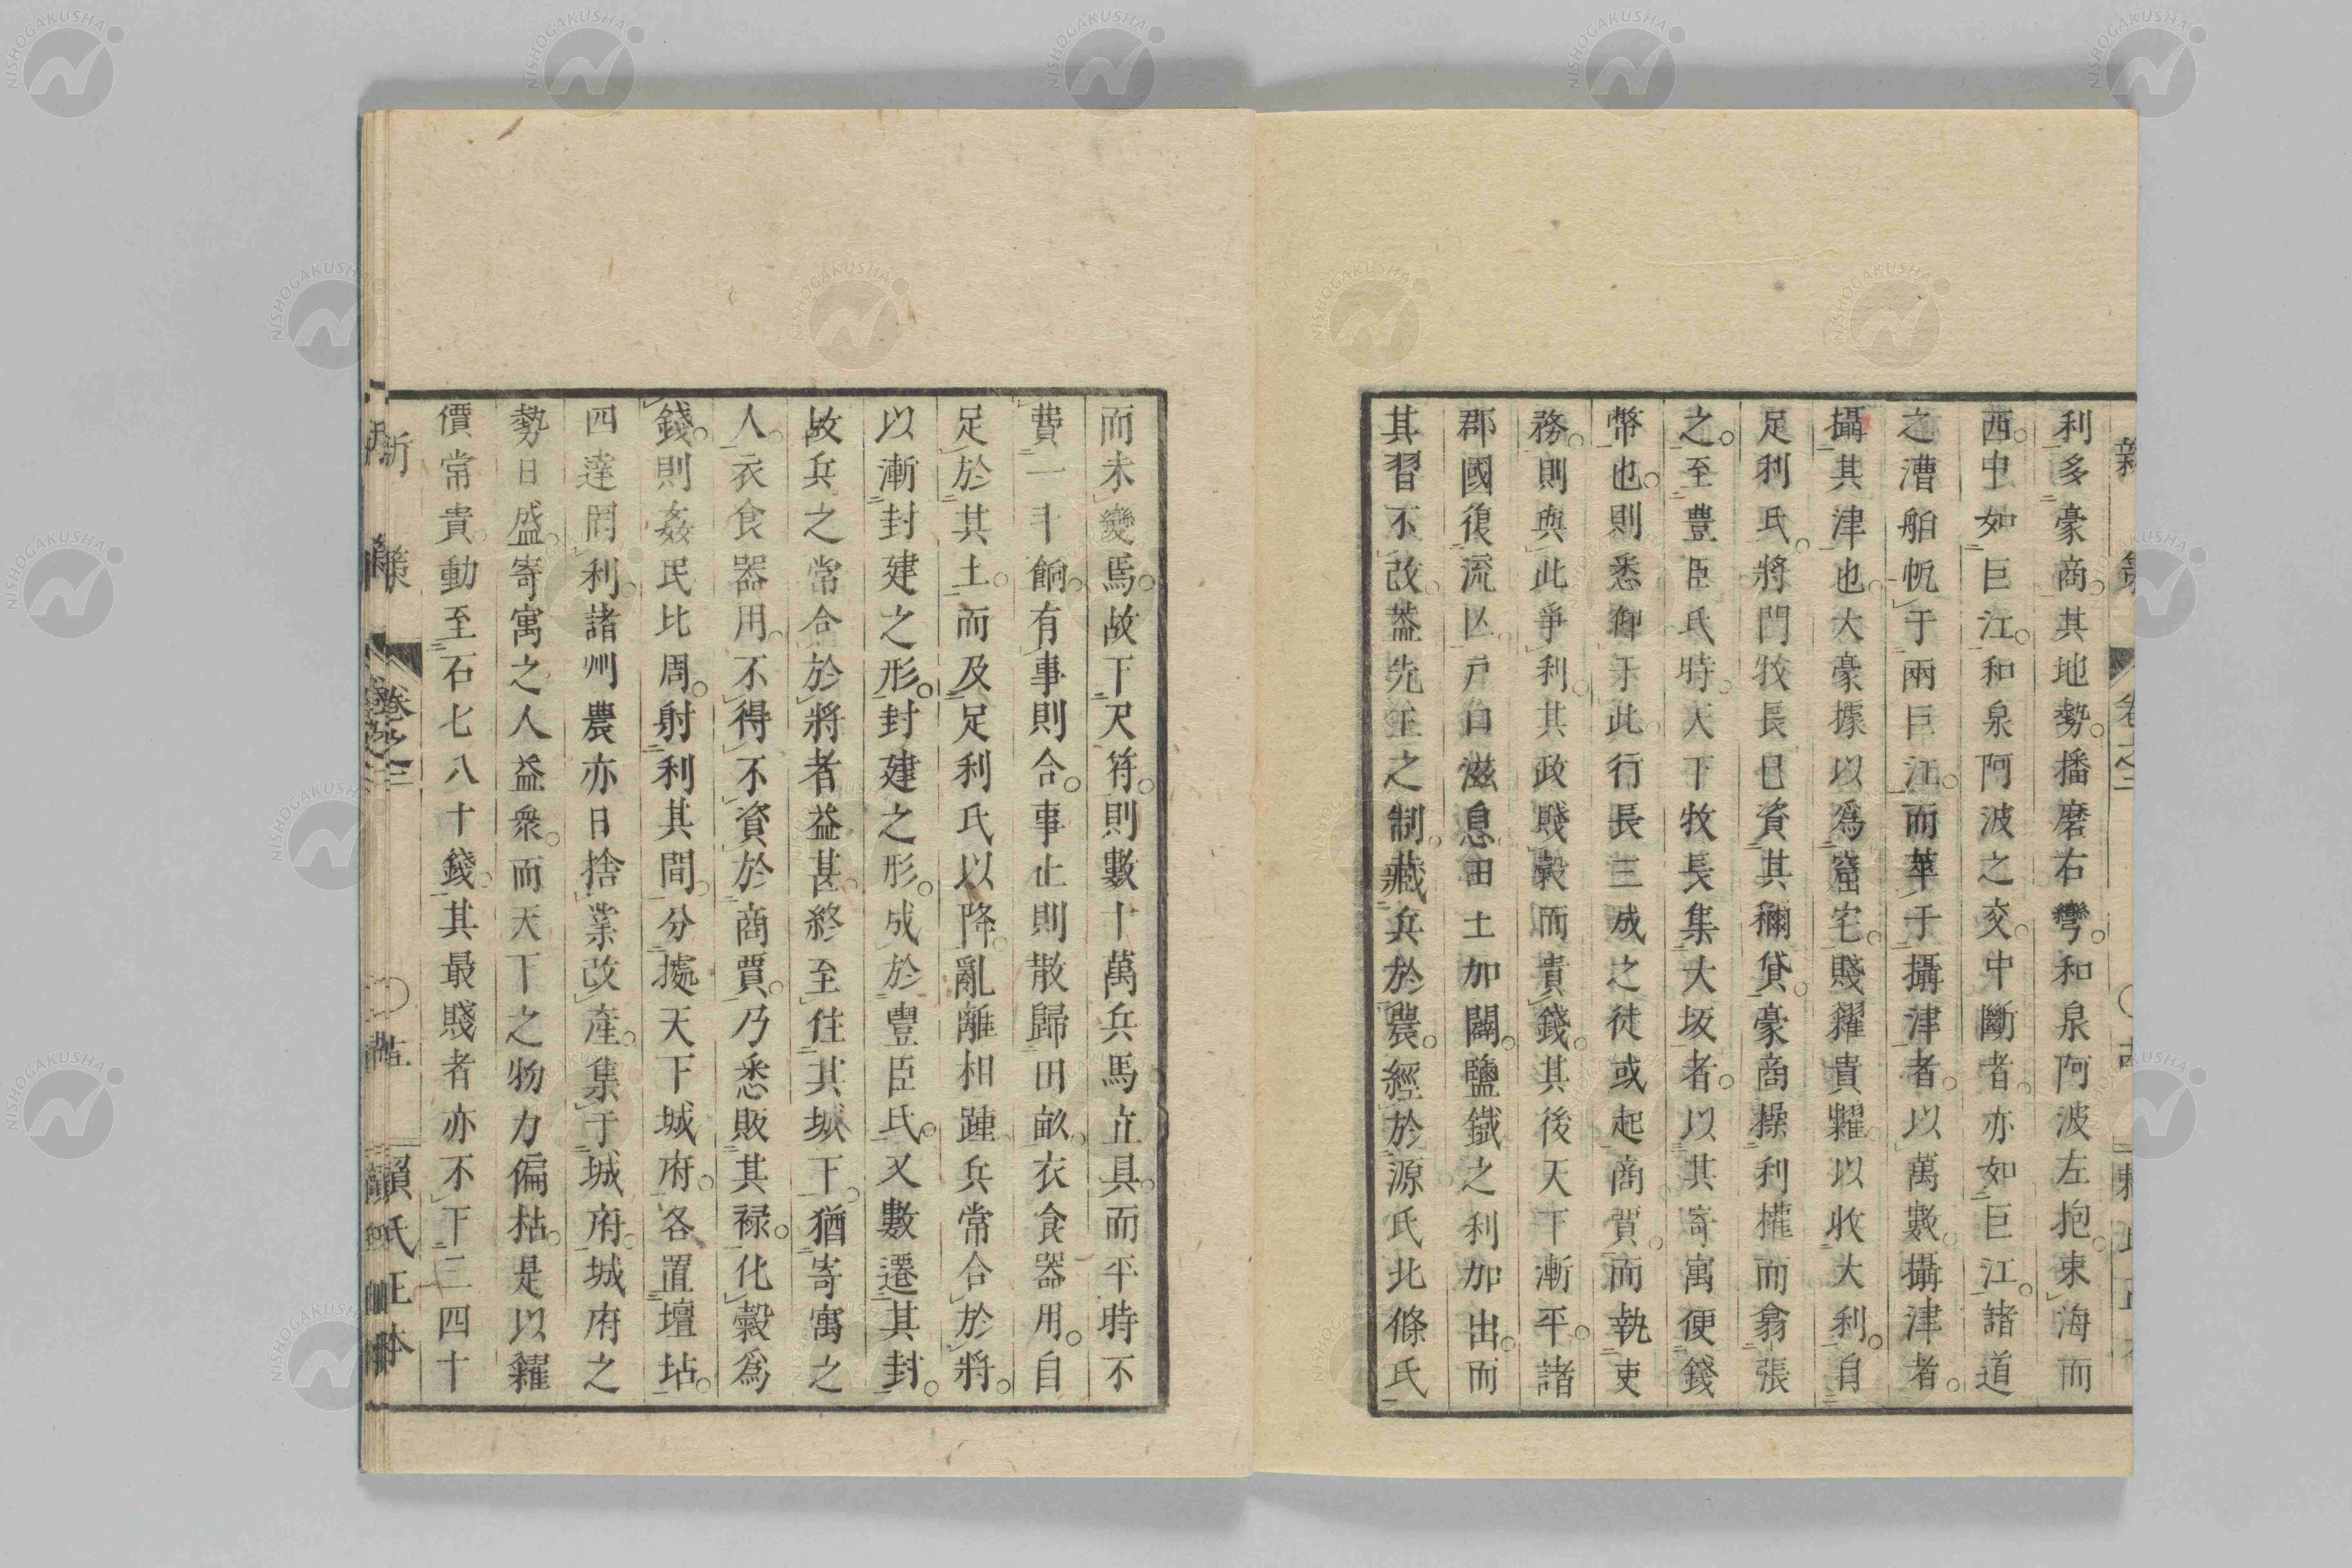 利多豪商。其地勢。播磨右彎。和泉阿波左抱。東海而
西。中如巨江。和泉阿波之交。中斷者。亦如巨江。諸道
之漕舶帆于兩巨江。而萃于攝津者。以萬數。攝津者。
攝其津也。大豪據以爲窟宅。賤糴貴糶。以收大利。自
足利氏。將門牧長已資其稱貸。豪商操利權而翕張
之。至豊臣氏時。天下牧長集大坂者。以其寄寓便錢
幣也。則悉仰于此。行長三成之徒或起商賀。而執吏
務。則與此爭利。其政賤穀而貴錢。其後天下漸平。諸
郡國復流亾。戸口滋息。田土加闢。鹽鐵之利加出。而
其習不改。葢先王之制。藏兵於農。經於源氏北條氏
而未變焉。故下尺符。則數十萬兵馬立具。而平時不
費一斗餉。有事則合。事止則散歸田畝。衣食器用。自
足於其土。而及足利氏以降。亂離相踵。兵常合於將。
以漸封建之形。封建之形。成於豐臣氏。又數遷其封。
故兵之常合於將者益甚。終至住其城下。猶寄寓之
人。衣食器用。不得不資於商賈。乃悉販其禄。化穀爲
錢。則姦民比周。射利其間。分據天下城府。各置壇坫。
四達罔利。諸州農亦日捨業改産。集于城府。城府之
勢日盛。寄寓之人益衆。而天下之物力偏枯。是以糴
價常貴。動至石七八十錢。其最賤者亦不下三四十
新策
卷之三
賴氏正本